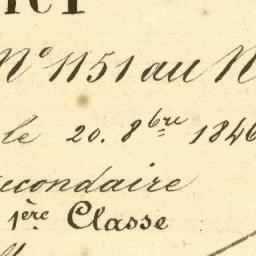 Nº 1151 au N
le 20. 8bre 1846
econdaire
1ère Classe